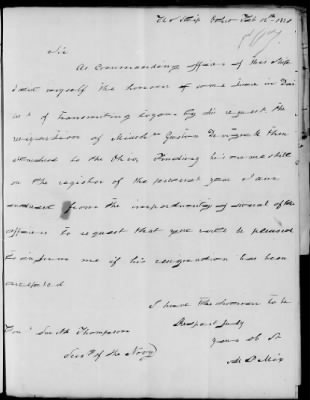 U S Ship Ohio Feb 12th 1821
Sir
As Commanding officer of this Ship
I did myself the honour of some time in
of transmitting to you by his request the
resignation of Midshn Gustavus then
attached to the Ohio, Finding his name still
on the register of the present year I am
induced from the importunity of several of the
officers to request that you will be pleased
to inform me if his resignation has been
accepted
I have the honour to be
Respectfully
yours Ob St
M P Mix
Honl Smith Thompson
Secy of the Navy